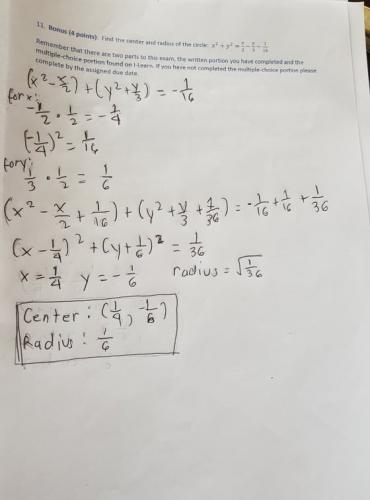 11. Bonus (4 points). Find the center and radius of the circle: x² + y² = x/2 − y/3 − 1/16
Remember that there are two parts to this exam, the written portion you have completed and the
multiple-choice portion found on I-Learn. If you have not completed the multiple-choice portion please
complete by the assigned due date.
(x² - x/2) + (y² + y/3) = - 1/16
for x:
- 1/2 · 1/2 = - 1/4
(- 1/4)² = 1/16
for y:
1/3 · 1/2 = 1/6
(x² - x/2 + 1/16) + (y² + y/3 + 1/36) = - 1/16 + 1/16 + 1/36
(x - 1/4)² + (y + 1/6)² = 1/36
x = 1/4 y = - 1/6 radius = √1/36
Center: (1/4, -1/6)
Radius: 1/6